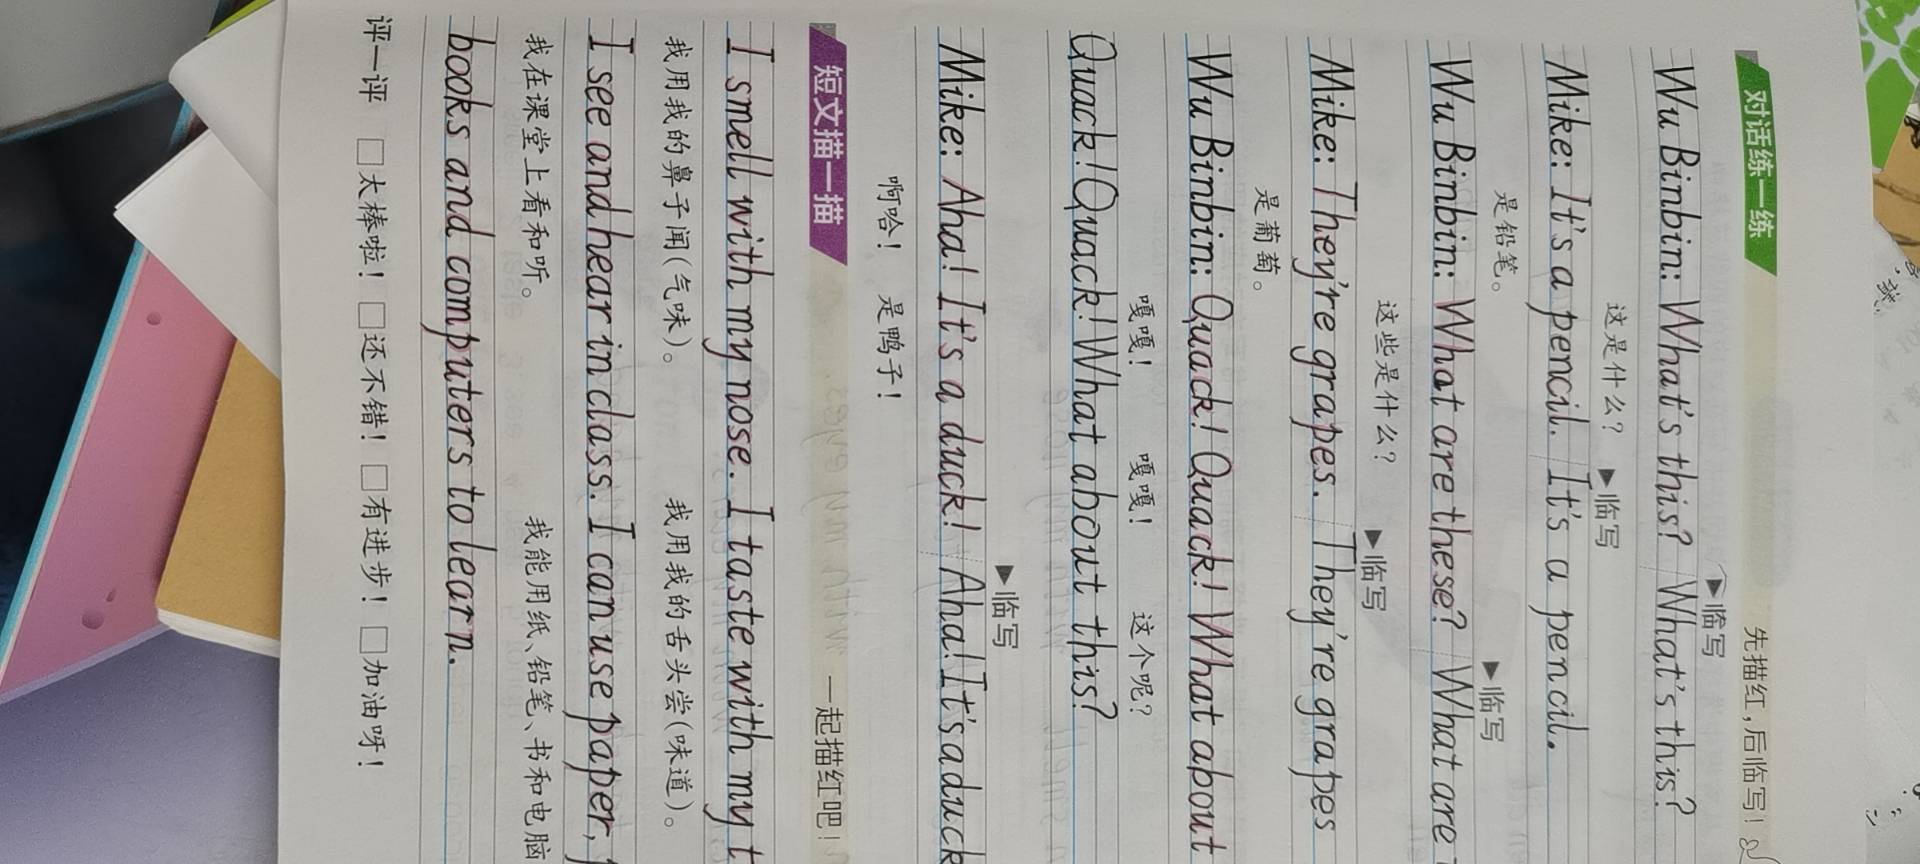 对话练一练 先描红，后临写！
▶临写
Wu Binbin: What's this? What's this?
这是什么？ ▶临写
Mike: It's a pencil. It's a pencil.
是铅笔。 ▶临写
Wu Binbin: What are these? What are
这些是什么？ ▶临写
Mike: They're grapes. They're grapes
是葡萄。
Wu Binbin: Quack! Quack! What about
嘎嘎！ 嘎嘎！ 这个呢？
Quack! Quack! What about this?
▶临写
Mike: Aha! It's a duck! Aha! It's a duck
啊哈！ 是鸭子！
短文描一描 一起描红吧！
I smell with my nose. I taste with my t
我用我的鼻子闻（气味）。 我用我的舌头尝（味道）。
I see and hear in class. I can use paper,
我在课堂上看和听。 我能用纸、铅笔、书和电脑
books and computers to learn.
评一评 □太棒啦！ □还不错！ □有进步！ □加油呀！